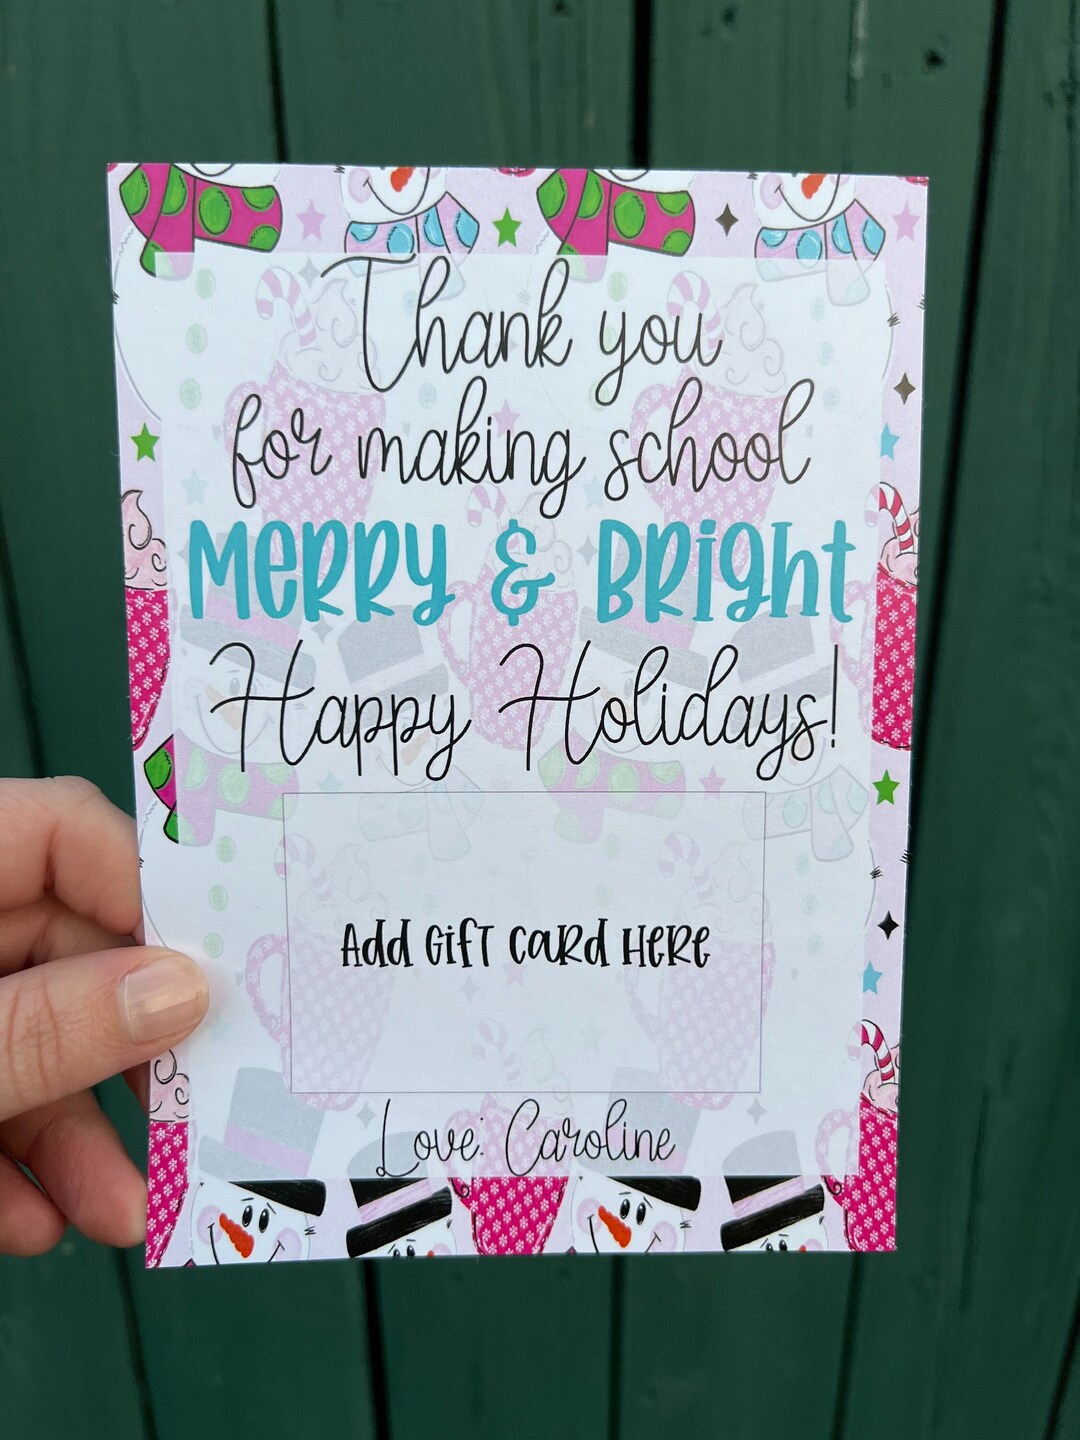 Thank you
for making school
MeRRy & BRight
Happy Holidays!
Add Gift Card Here
Love: Caroline